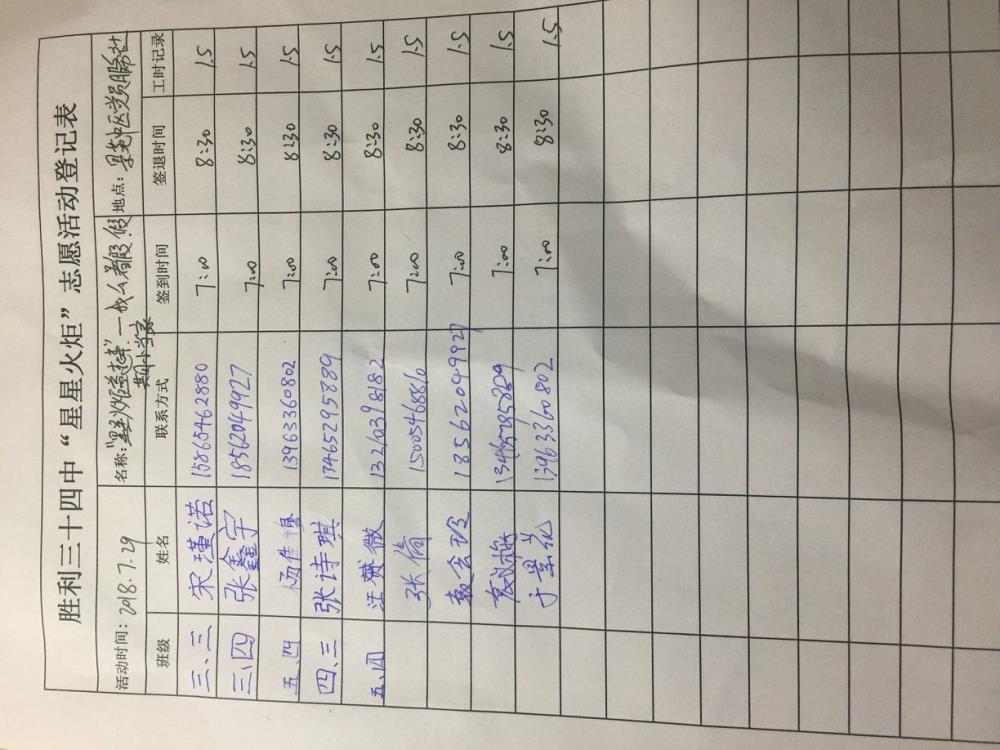 胜利三十四中“星星火炬”志愿活动登记表
活动时间：2018.7.29 名称： 地点：
班级 姓名 联系方式 签到时间 签退时间 工时记录
三、三 宋瑾诺 15865462880 7:00 8:30 1.5
三、四 张鑫宇 18562049927 7:00 8:30 1.5
五、四 杨佳 13963360802 7:00 8:30 1.5
四、三 张诗琪 13465295889 7:00 8:30 1.5
五、四 江赟微 7:00 8:30 1.5
张倩 15005468810 7:00 8:30 1.5
袁会玲 18562049927 7:00 8:30 1.5
7:00 8:30 1.5
于景花 13963360802 7:00 8:30 1.5